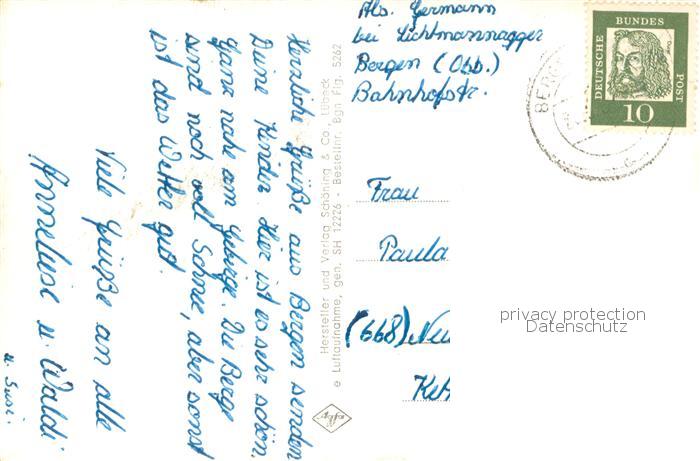 Herzliche Grüße aus Bergen senden
Deine Kinder. Hier ist es sehr schön.
Ganz nahe am Gebirge. Die Berge
sind noch voll Schnee, aber sonst
ist das Wetter gut.
Viele Grüße an alle
Anneliese u. Waldi
u. Susi.
Hersteller und Verlag Schöning & Co., Lübeck
e Luftaufnahme, gen. SH 12226 - Bestellnr. Bgn Flg. 5262
Agfa
Abs. Germann
bei Lichtmannegger
Bergen (Obb.)
Bahnhofstr.
DEUTSCHE BUNDES POST
10
Frau
Paula
(668) Neu
privacy protection
Datenschutz